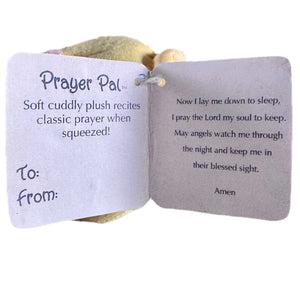 Prayer Pal™
Soft cuddly plush recites
classic prayer when
squeezed!
To:
From:
Now I lay me down to sleep,
I pray the Lord my soul to keep.
May angels watch me through
the night and keep me in
their blessed sight.
Amen